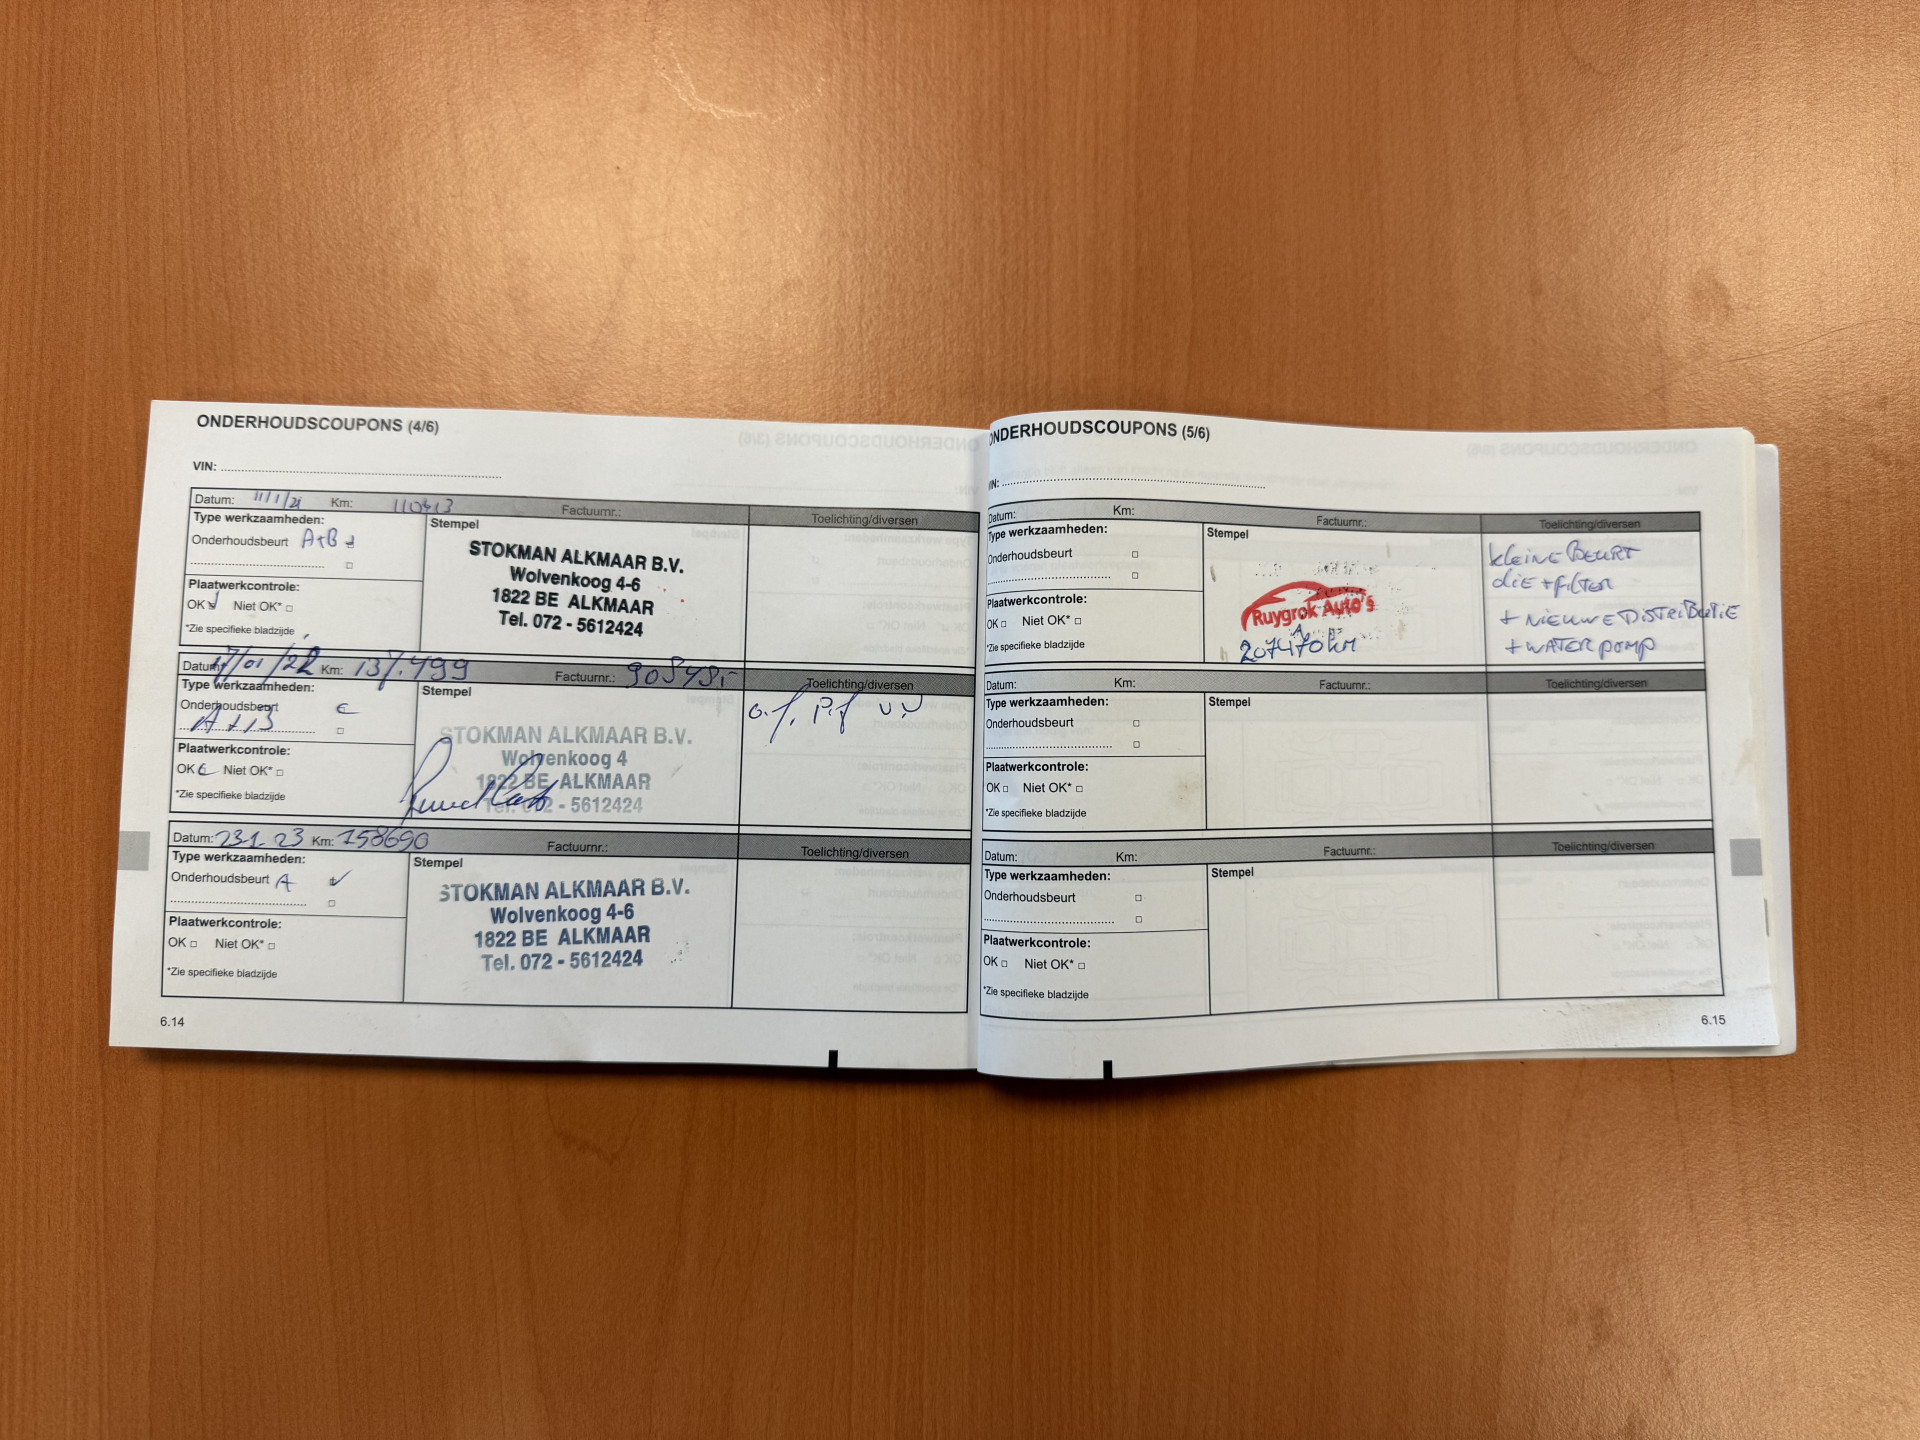 ONDERHOUDSCOUPONS (4/6)
VIN:
Datum: 11/1/21 Km: 110413 Factuurnr.: Toelichting/diversen
Type werkzaamheden:
Onderhoudsbeurt A+B
Plaatwerkcontrole:
OK Niet OK*
*Zie specifieke bladzijde
Stempel
STOKMAN ALKMAAR B.V.
Wolvenkoog 4-6
1822 BE ALKMAAR
Tel. 072 - 5612424
Datum: 17/01/22 Km: 137.499 Factuurnr.: Toelichting/diversen
Type werkzaamheden:
Onderhoudsbeurt
A+B
Plaatwerkcontrole:
OK Niet OK*
*Zie specifieke bladzijde
Stempel
STOKMAN ALKMAAR B.V.
Wolvenkoog 4
1822 BE ALKMAAR
Tel. 072 - 5612424
Datum: 23-1-23 Km: 158690 Factuurnr.: Toelichting/diversen
Type werkzaamheden:
Onderhoudsbeurt A
Plaatwerkcontrole:
OK Niet OK*
*Zie specifieke bladzijde
Stempel
STOKMAN ALKMAAR B.V.
Wolvenkoog 4-6
1822 BE ALKMAAR
Tel. 072 - 5612424
6.14
ONDERHOUDSCOUPONS (5/6)
VIN:
Datum: Km: Factuurnr.: Toelichting/diversen
Type werkzaamheden:
Onderhoudsbeurt
Plaatwerkcontrole:
OK Niet OK*
*Zie specifieke bladzijde
Stempel
Ruygrok Auto's
207470 km
kleine Beurt
olie + filter
+ Nieuwe Distributie
+ waterpomp
Datum: Km: Factuurnr.: Toelichting/diversen
Type werkzaamheden:
Onderhoudsbeurt
Plaatwerkcontrole:
OK Niet OK*
*Zie specifieke bladzijde
Stempel
Datum: Km: Factuurnr.: Toelichting/diversen
Type werkzaamheden:
Onderhoudsbeurt
Plaatwerkcontrole:
OK Niet OK*
*Zie specifieke bladzijde
Stempel
6.15